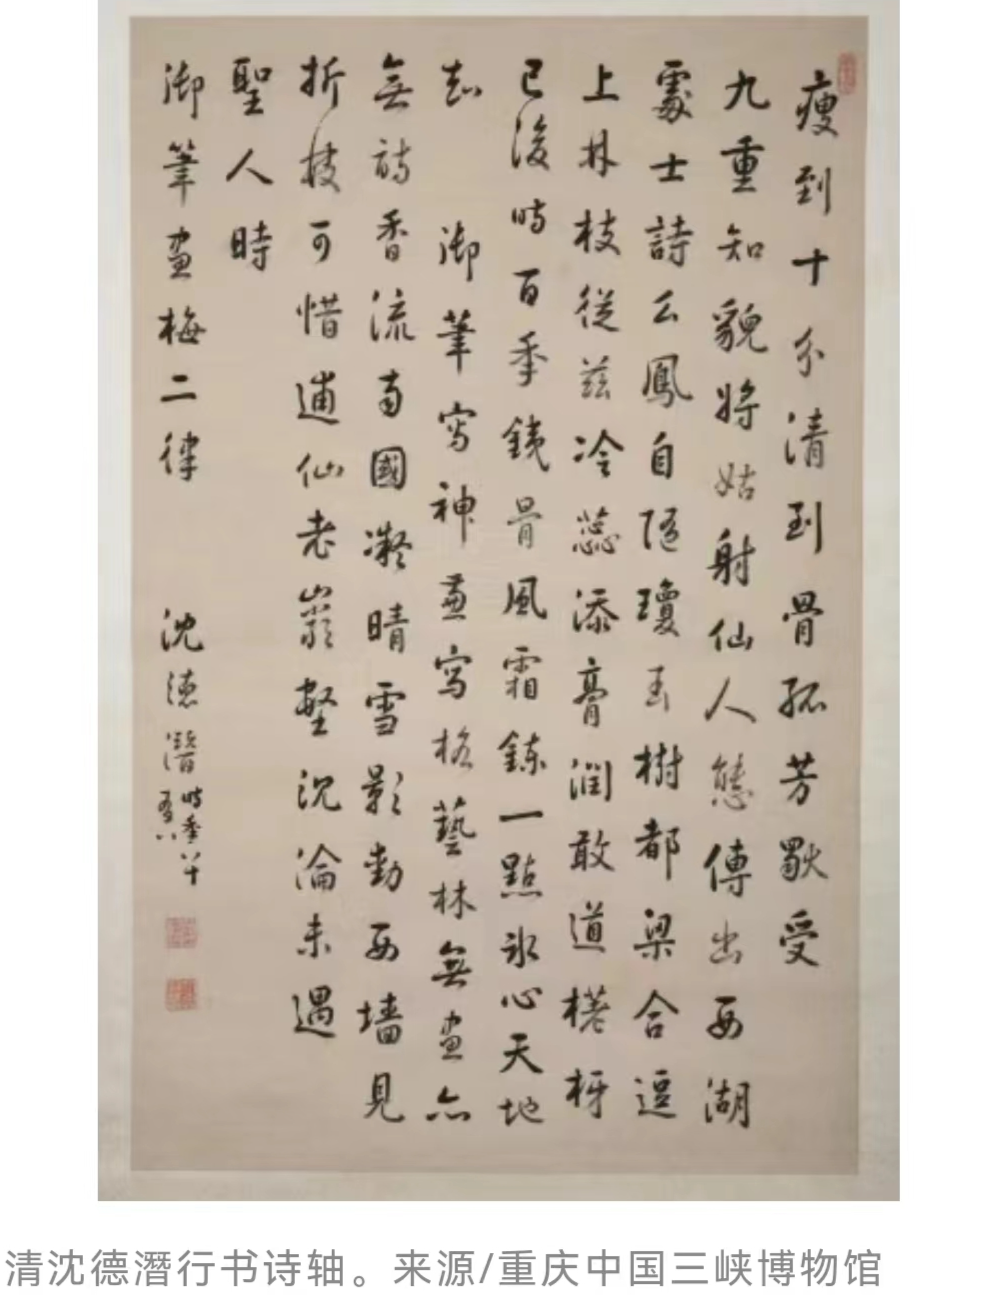 瘦到十分清到骨孤芳歇受
九重知貌將姑射仙人態傳出西湖
處士詩么鳳自隨瓊玉樹都梁合逗
上林枝從茲冷蕊添膏潤敢道槎枒
已後時百年鐵骨風霜鍊一點冰心天地
知 御筆寫神兼寫格藝林無畫亦
無詩香流南國凝晴雪影動西墻見
折枝可惜逋仙老巖壑沉淪未遇
聖人時
御筆畫梅二律 沈德潛時年八十
清沈德潛行书诗轴。来源/重庆中国三峡博物馆